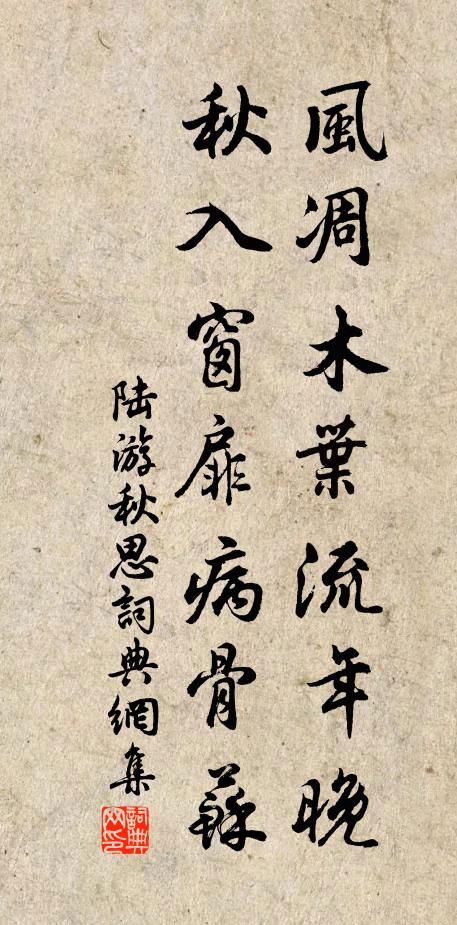 風凋木葉流年晚
秋入窗扉病骨蘇
陆游秋思詞典網集
詞典网印